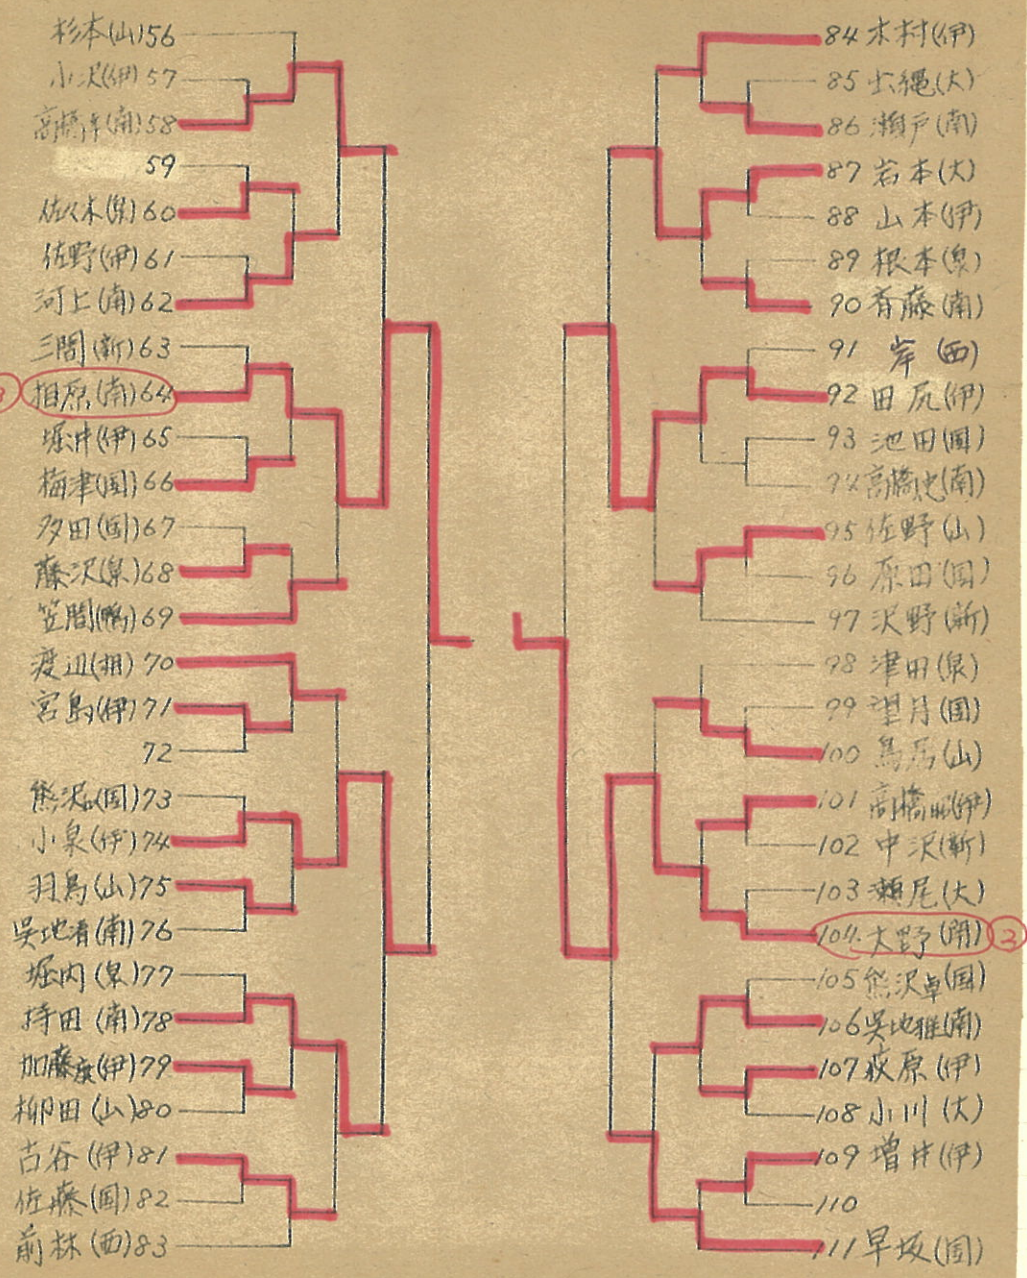 杉本(山)56
小沢(伊)57
高橋(南)58
59
佐々木(泉)60
佐野(伊)61
河上(南)62
三間(新)63
相原(南)64
堀井(伊)65
梅津(国)66
多田(国)67
藤沢(泉)68
笠間(鴨)69
渡辺(相)70
宮島(伊)71
72
熊沢(国)73
小泉(伊)74
羽鳥(山)75
呉地清(南)76
堀内(泉)77
持田(南)78
加藤(伊)79
柳田(山)80
古谷(伊)81
佐藤(国)82
前林(西)83
84木村(伊)
85出縄(大)
86瀬戸(南)
87岩本(大)
88山本(伊)
89根本(泉)
90斉藤(南)
91岸(西)
92田尻(伊)
93池田(国)
94高橋忠(南)
95佐野(山)
96原田(国)
97沢野(新)
98津田(泉)
99望月(国)
100鳥居(山)
101高橋(伊)
102中沢(新)
103瀬尾(大)
104大野(開)③
105熊沢卓(国)
106呉地雅(南)
107荻原(伊)
108小川(大)
109増井(伊)
110
111早坂(国)